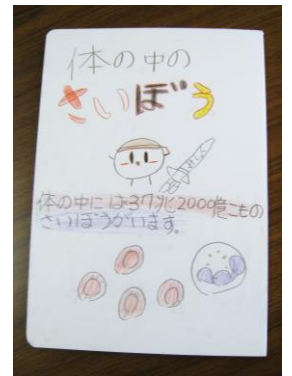 体の中の
さいぼう
体の中には37兆2000億こもの
さいぼうがいます。